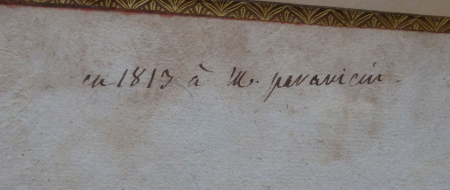 en 1813 à M. paravicin.